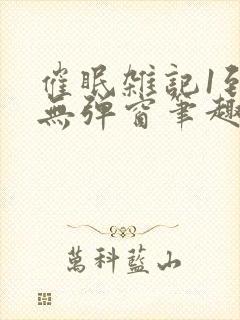 催眠雑記1到
無弹窗筆趣
萬科藍山